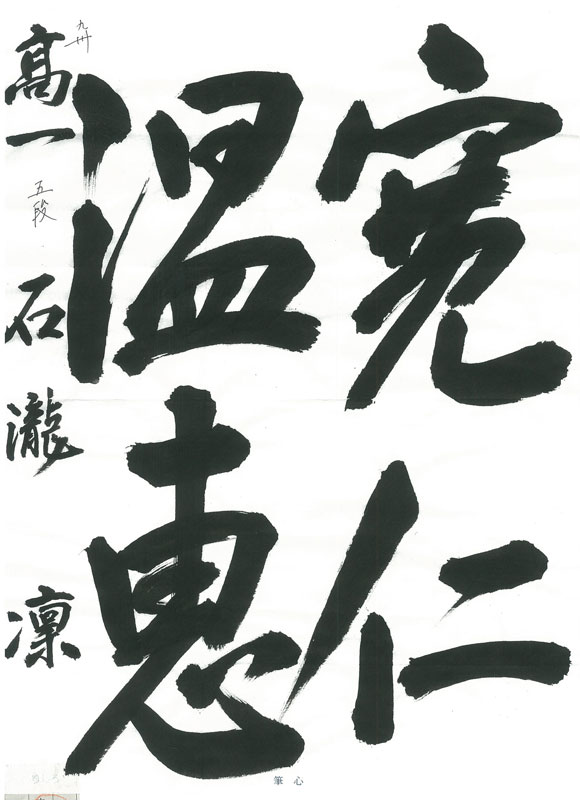 寛仁
温恵
九州
高一 五段 石瀧 凜
筆心